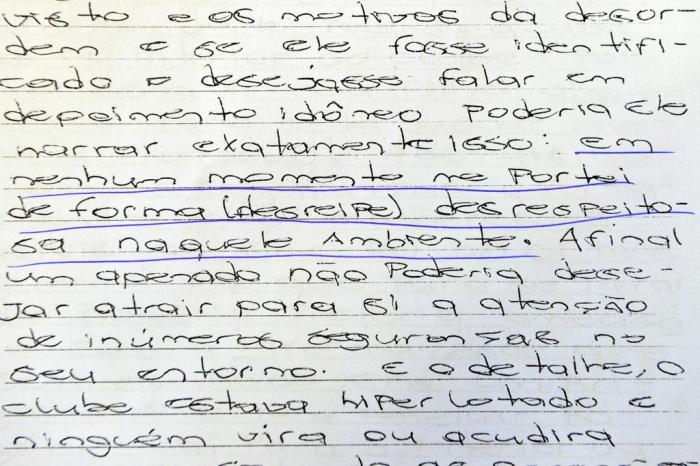 visto e os motivos da desor-
dem e se ele fosse identifi-
cado e desejasse falar em
depoimento idôneo poderia ele
narrar exatamente isso: em
nenhum momento me portei
de forma (desreipe) desrespeito-
sa naquele Ambiente. Afinal
um apenado não poderia dese-
jar atrair para si a atenção
de inúmeros seguransas no
seu entorno. E o detalhe, o
clube estava hiper lotado e
ninguém vira ou acudira